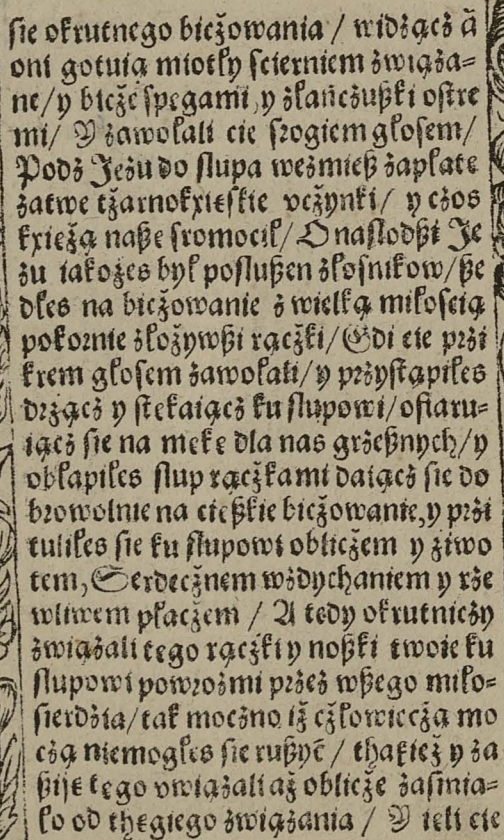 sie okrutnego bicżowania / widzącż ā
oni gotuią miotły scierniem żwiąża⸗
ne/y bicże spęgami, y żłańcżußki ostre
mi/ Y żawołali cie srogiem głosem/
Podż Jeżu do slupa weżmieß żapłatę
żatwe tżarnokxięskie vcżynki/ y cżos
kxiężą naße sromocił/ O nasłodßi Je
żu iakożes był poslußen żłosnikow/ße
dłes na bicżowanie ż wielką miłoscią
pokornie żłożywßi rącżki/ Gdi cie prżi
krem głosem żawołali/y prżystąpiłes
drżącż y stekaiącż ku slupowi/ofiaru⸗
iącż sie na mękę dla nas grżeßnych/y
obłapiłes slup rącżkami daiącż sie do
browolnie na cięßkie bicżowanie, y prżi
tuliłes sie ku slupowi oblicżem y żiwo
tem, Serdecżnem wżdychaniem y rże
wliwem płacżem / A tedy okrutnicży
żwiążali tego rącżki y noßki twoie ku
slupowi powrożmi prżeż wßego miło⸗
sierdżia/tak mocżno iż cżłowiecżą mo
cżą niemogłes sie rußyć / thakież y ża
ßiję tego vwiążali aż oblicże żasinia⸗
ło od thęgiego żwiążania / Y ięli cie